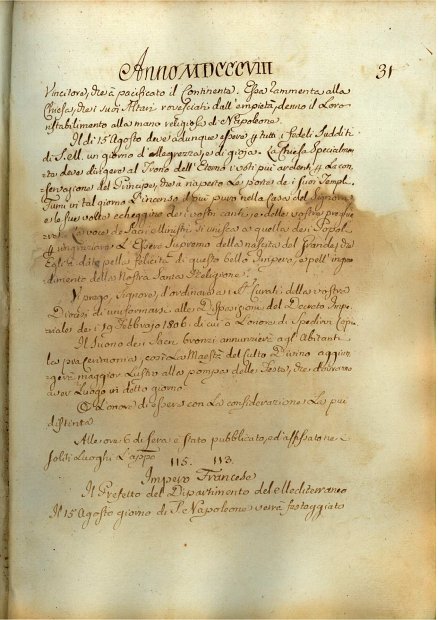 Anno MDCCCVIII
31
Vincitore, che à pacificato il Continente. Essa rammenta alla
Chiesa, che i suoi Altari rovesciati dall'empietà, denno il Loro
ristabilimento alla mano religiosa di Napoleone.
Il dì 15 Agosto deve adunque essere per tutti i fedeli Sudditi
di S. M. un giorno d'Allegrezza, e di gioja. La Chiesa Specialmen-
te deve dirigere al Trono dell'Eterno i voti più ardenti per La con-
servazione del Principe, che à riaperto Le porte de i suoi Templi.
Fumi in tal giorno l'incenso il più puro nella Casa del Signore,
e le sue volte echeggino dei vostri canti, e delle vostre preghie-
La voce de Sacri Ministri si unisca a quella dei Popoli
per ringraziare L'Essere Supremo della nascita del Grande, che
Egli à dato pella felicità di questo bello Impero, e pell'ingran-
dimento della Nostra Santa Religione.
Vi prego, Signore, d'ordinare ai Curati della vostra
Diocesi di uniformarsi alle Disposizioni del Decreto Impe-
riale de i 19 Febbrajo 1806. di cui ò L'onore di Spedirvi Copia
Il Suono dei Sacri bronzi annunzierà agli Abitanti
la pia Cerimonia, così La Maestà del Culto Divino aggiun-
gerà maggior Lustro alla pompa delle Feste, che dovranno
aver Luogo in detto giorno.
Ò L'onore di essere con La considerazione La più
distinta
Alle ore 6 di sera è stato pubblicato, ed affissato ne
soliti Luoghi L'app.o
115. 113.
Impero Francese
Il Prefetto del Dipartimento del Mediterraneo
Il 15 Agosto giorno di S. Napoleone verrà festeggiato